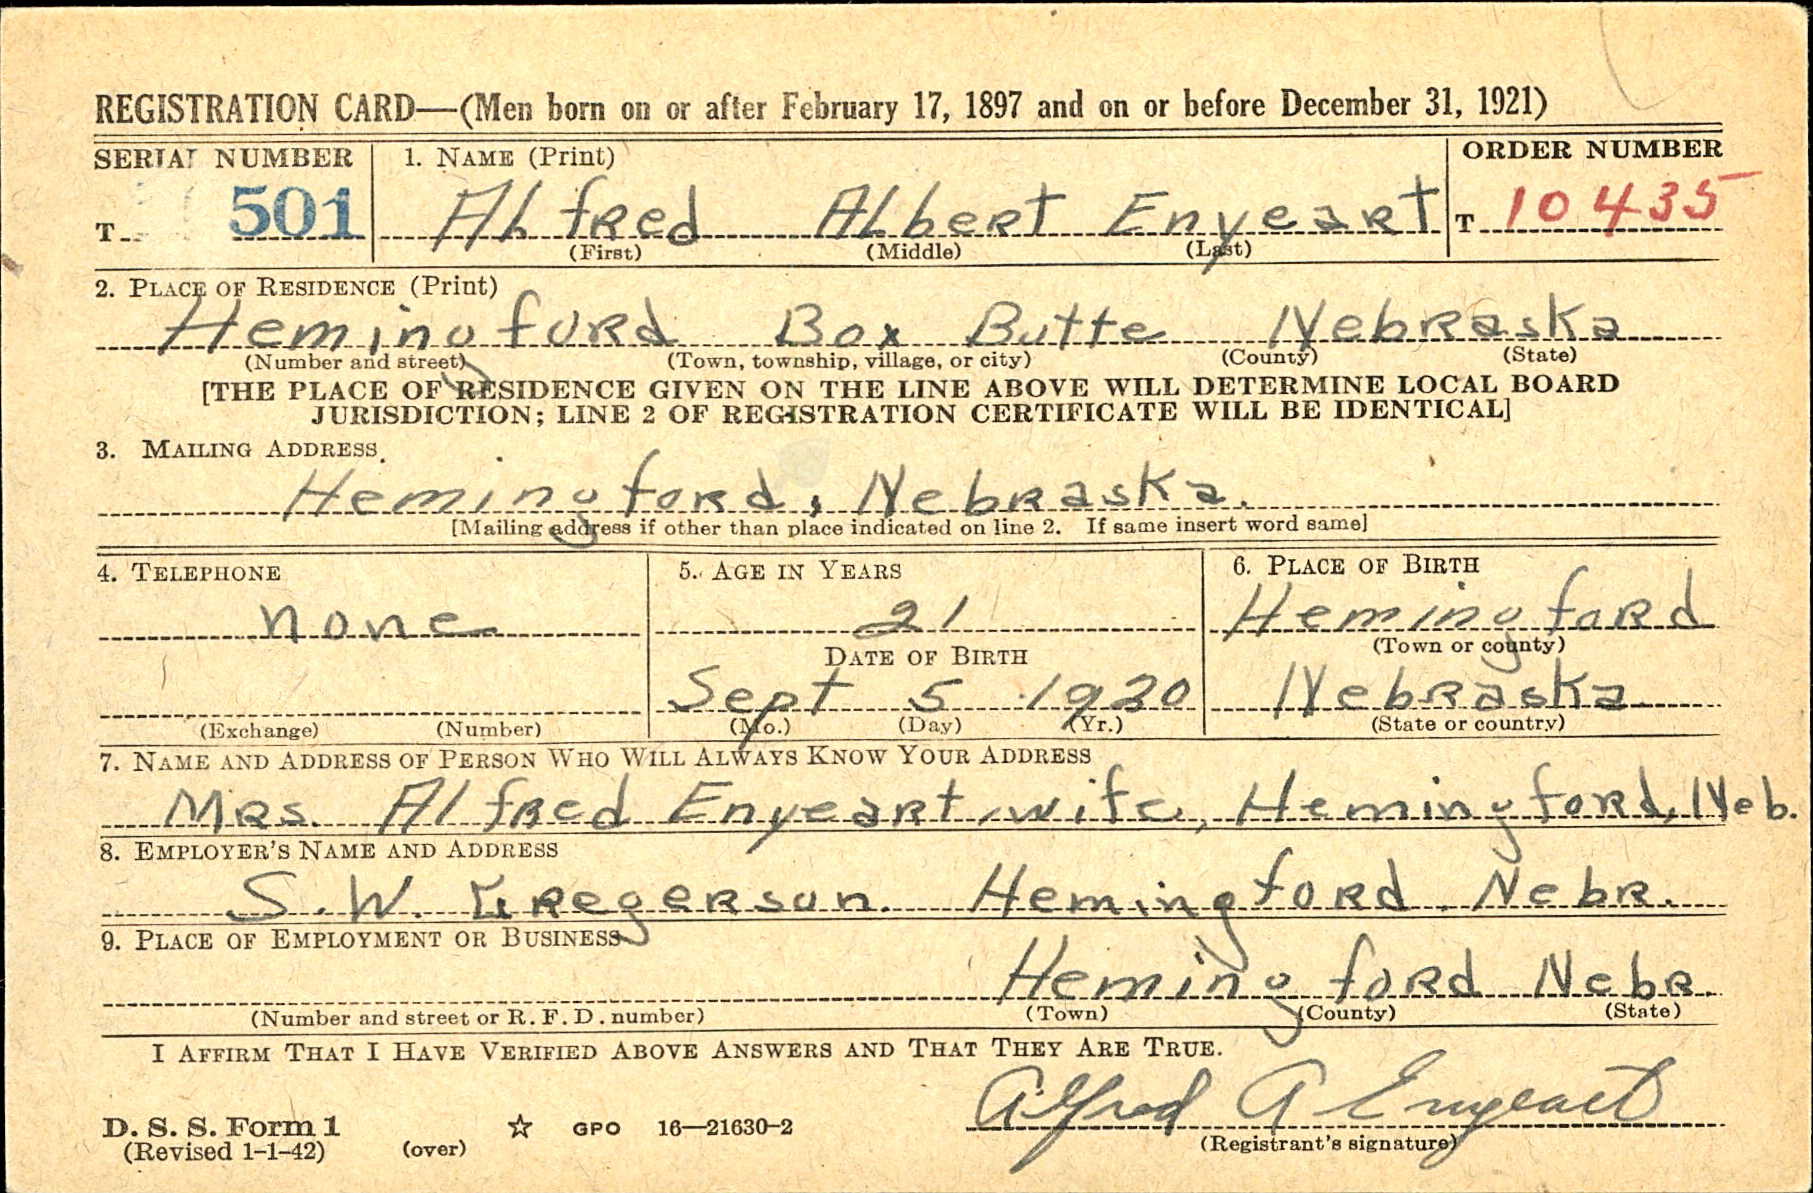 REGISTRATION CARD—(Men born on or after February 17, 1897 and on or before December 31, 1921)
SERIAL NUMBER 1. NAME (Print) ORDER NUMBER
T 501 Alfred Albert Enyeart T 10435
(First) (Middle) (Last)
2. PLACE OF RESIDENCE (Print)
Hemingford Box Butte Nebraska
(Number and street) (Town, township, village, or city) (County) (State)
[THE PLACE OF RESIDENCE GIVEN ON THE LINE ABOVE WILL DETERMINE LOCAL BOARD
JURISDICTION; LINE 2 OF REGISTRATION CERTIFICATE WILL BE IDENTICAL]
3. MAILING ADDRESS
Hemingford, Nebraska.
[Mailing address if other than place indicated on line 2. If same insert word same]
4. TELEPHONE 5. AGE IN YEARS 6. PLACE OF BIRTH
none 21 Hemingford
DATE OF BIRTH (Town or county)
Sept 5 1920 Nebraska
(Exchange) (Number) (Mo.) (Day) (Yr.) (State or country)
7. NAME AND ADDRESS OF PERSON WHO WILL ALWAYS KNOW YOUR ADDRESS
Mrs. Alfred Enyeart, wife, Hemingford, Neb.
8. EMPLOYER'S NAME AND ADDRESS
S. W. Gregerson. Hemingford. Nebr.
9. PLACE OF EMPLOYMENT OR BUSINESS
Hemingford Nebr.
(Number and street or R. F. D. number) (Town) (County) (State)
I AFFIRM THAT I HAVE VERIFIED ABOVE ANSWERS AND THAT THEY ARE TRUE.
Alfred A Enyeart
D. S. S. Form 1 ☆ GPO 16—21630-2
(Revised 1-1-42) (over) (Registrant's signature)